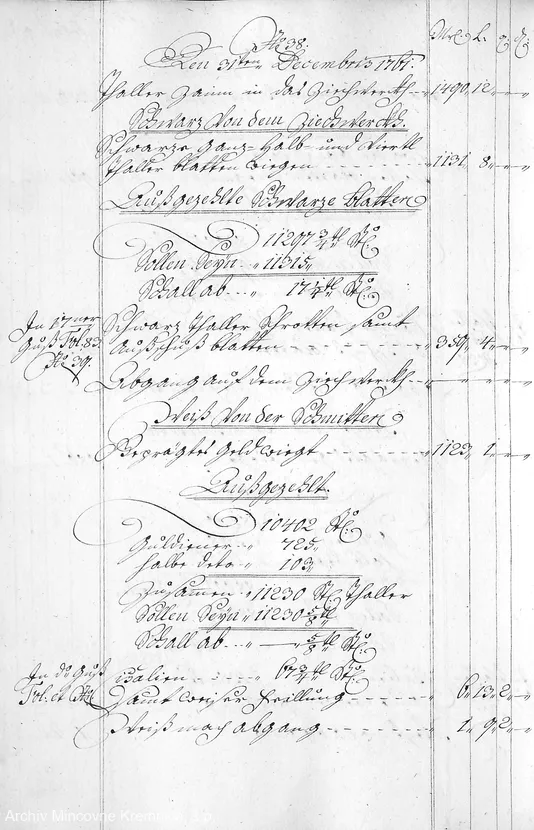 No 38.
Mrk. L. q. d.
Den 31ten Decembris 1761.
Thaller Zainn in das Ziechwerckh 1490 „ 12 „
Schwarz Von dem Ziechwerckh.
Schwarze Ganz- Halb- und Viertl
Thaller blatten wiegen 1131 „ 8 „
Außgezehlte Schwarze blatten
11297 3/4 tl St:
Sollen Seyn „ 11315 „
Schall ab „ 17 1/4 tl St:
In 17ner
Guß Fol: 83
No 39.
Schwarz Thaller Schrotten samt
Außschuß blatten 359 „ 4 „
Abgang auf dem Ziechwerckh
Weiß Von der Schmitten
Geprägtes Geld wiegt 1123 „ 1 „
Außgezehlt.
10402 St:
Guldiener „ 725 „
halbe deto „ 103 „
Zusamen „ 11230 St: Thaller
Sollen Seyn „ 11230 5/8 tl
Schall ab „ 5/8 tl St:
In do Guß
Fol: et No
67 3/4 tl St:
Samt weiser 6 „ 13 „ 2 „
Weiß mach abgang 1 „ 9 „ 2 „
Archiv Mincovne Kremnica,